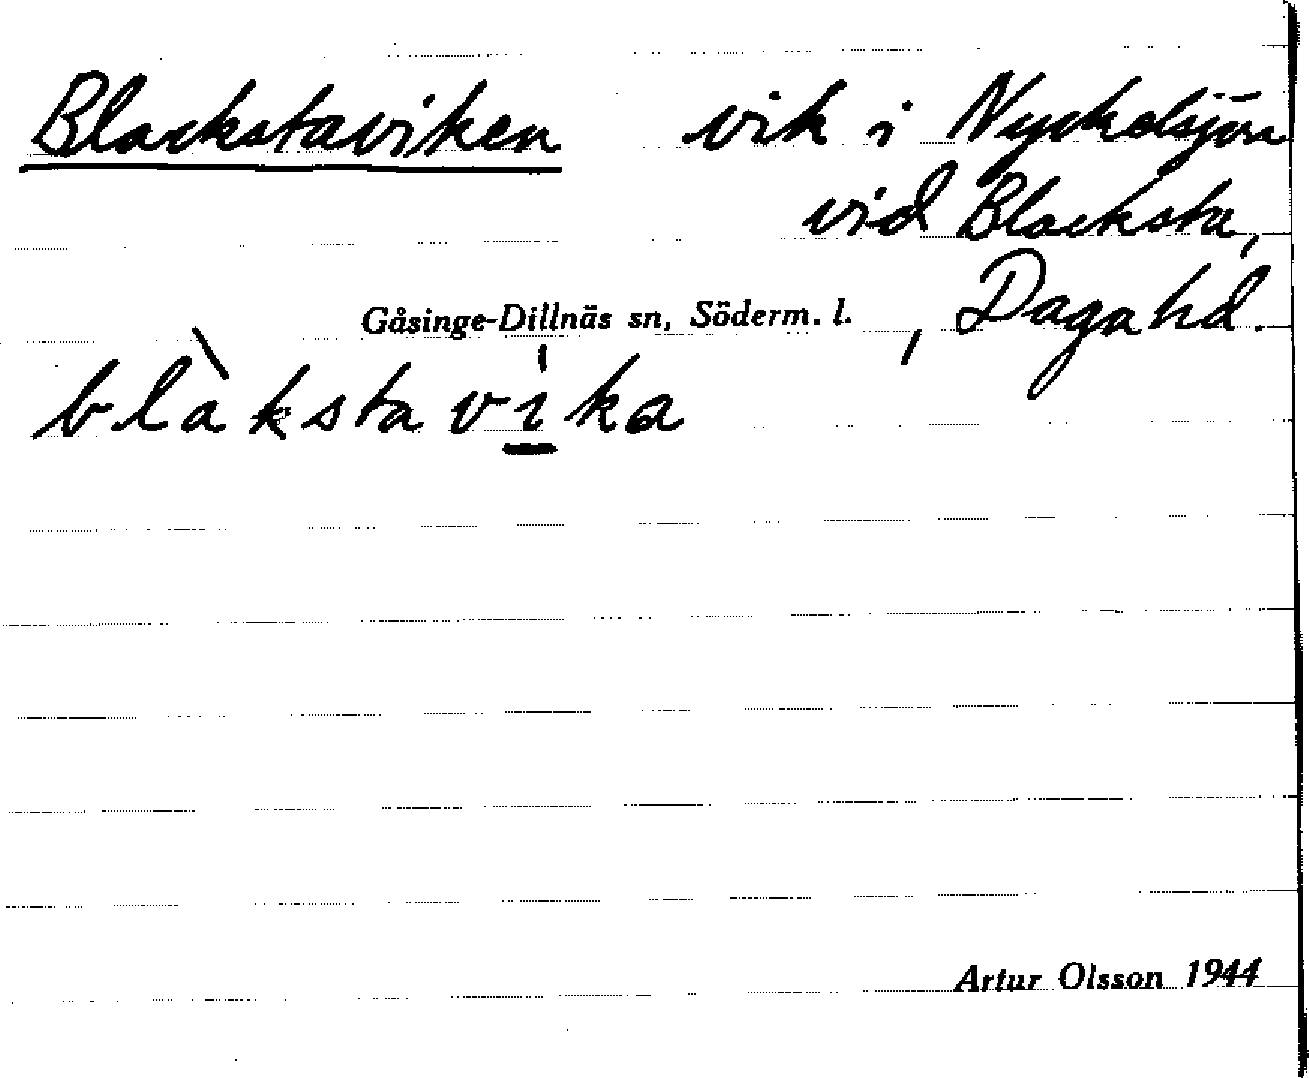 Blackstaviken vik i Nyckelsjön
vid Blacksta,
Gåsinge-Dillnäs sn, Söderm. l. , Daga hd.
blàkstavika
Artur Olsson 1944